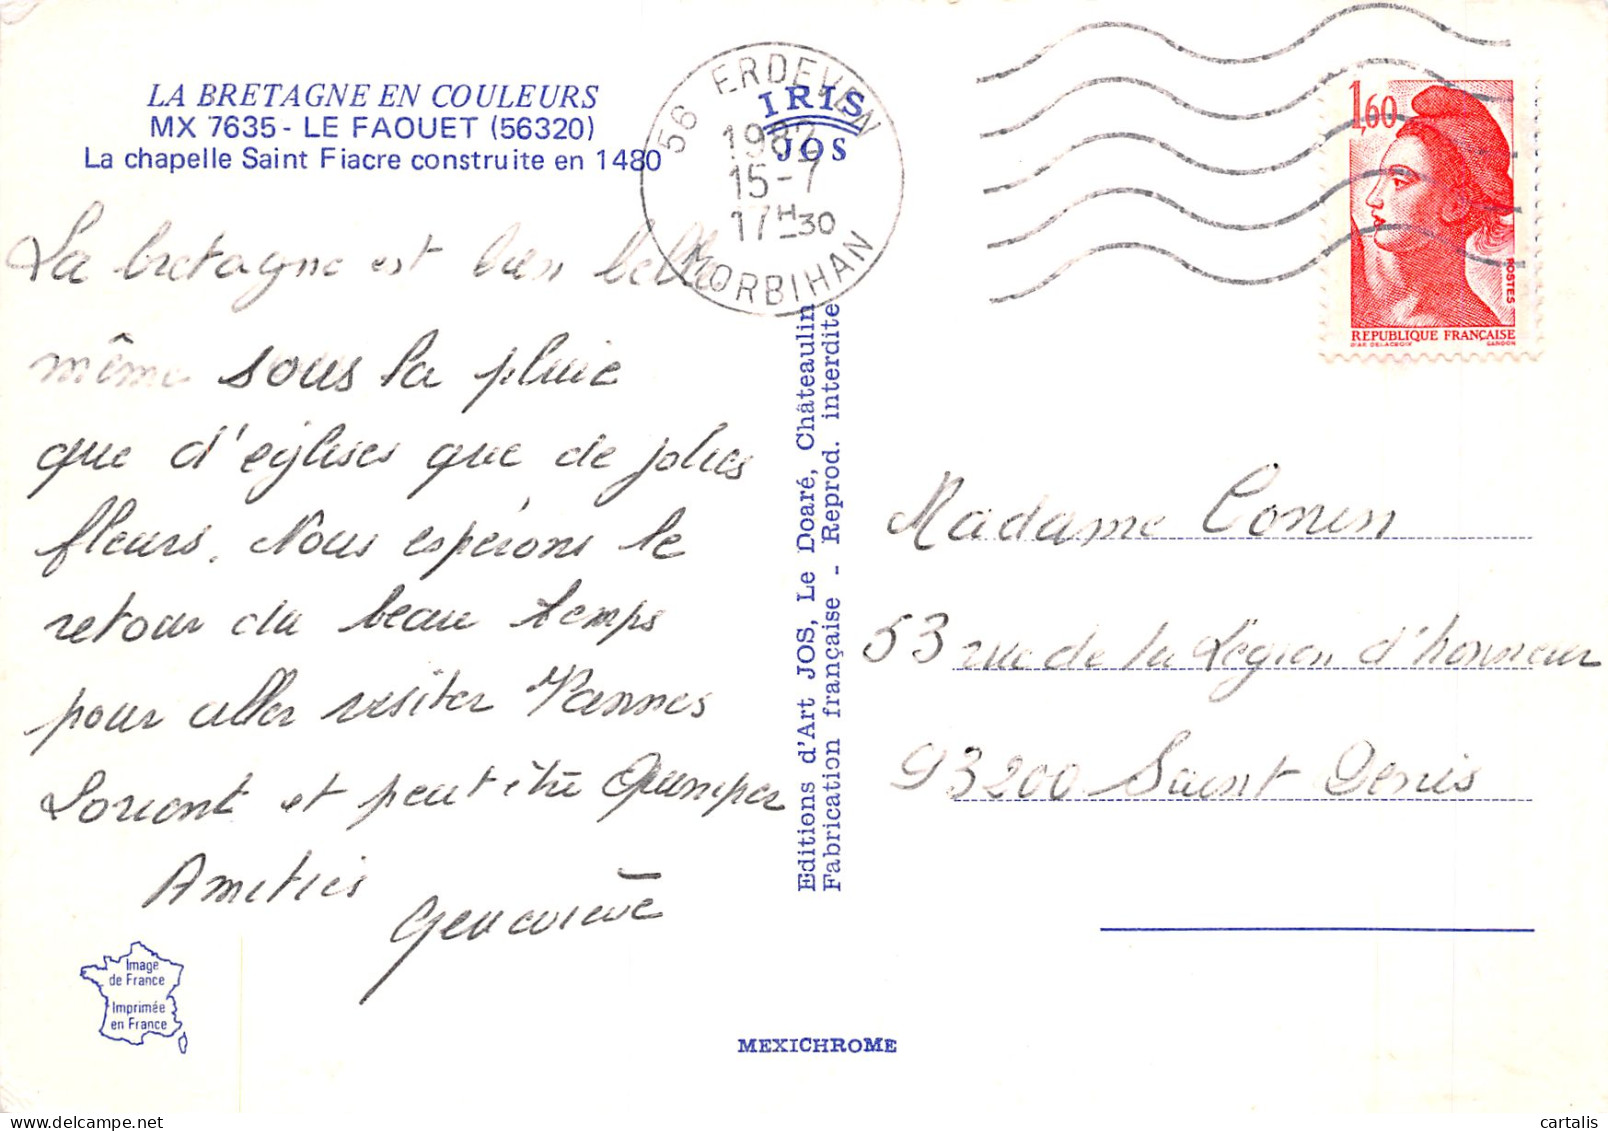 LA BRETAGNE EN COULEURS
MX 7635 - LE FAOUET (56320)
La chapelle Saint Fiacre construite en 1480
La bretagne est bien belle
même sous la pluie
que d'églises que de jolies
fleurs. Nous espérons le
retour du beau temps
pour aller visiter Vannes
Lorient et peut être Quimper
Amitiés
Geneviève
Image
de France
Imprimée
en France
56 ERDEVEN
1982
15-7
17H30
MORBIHAN
IRIS
JOS
Editions d'Art JOS, Le Doaré, Châteaulin
Fabrication française - Reprod. interdite
MEXICHROME
1,60
POSTES
REPUBLIQUE FRANÇAISE
D'AP. DELACROIX GANDON
Madame Conen
53 rue de la Légion d'honneur
93200 Saint Denis
cartalis